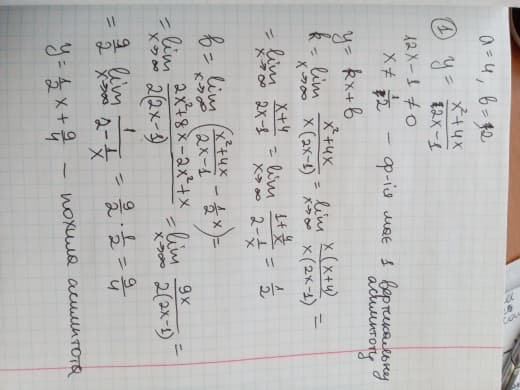 a=4, b=2
① y = (x²+4x)/(2x-1)
2x-1 ≠ 0
x ≠ 1/2 - ф-ія має 1 вертикальну асимптоту
y=kx+b
k = lim x→∞ (x²+4x)/(x(2x-1)) = lim x→∞ (x(x+4))/(x(2x-1)) =
= lim x→∞ (x+4)/(2x-1) = lim x→∞ (1+4/x)/(2-1/x) = 1/2
b = lim x→∞ ((x²+4x)/(2x-1) - 1/2 x) =
= lim x→∞ (2x²+8x-2x²+x)/(2(2x-1)) = lim x→∞ 9x/(2(2x-1)) =
= 9/2 lim x→∞ 1/(2-1/x) = 9/2 · 1/2 = 9/4
y = 1/2 x + 9/4 - похила асимптота